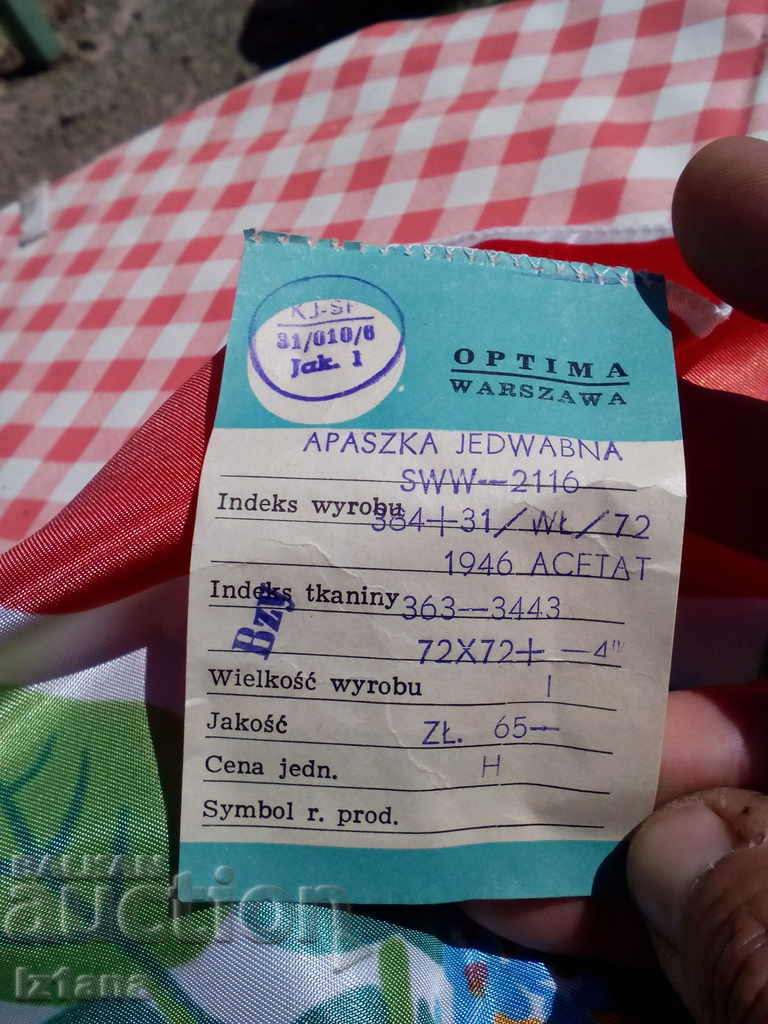 KJ-SF
31/010/6
Jak. 1
OPTIMA
WARSZAWA
APASZKA JEDWABNA
SWW--2116
Indeks wyrobu
384+31/WŁ/72
1946 ACETAT
Indeks tkaniny
363--3443
Bzy
72X72+ —4"
Wielkość wyrobu
I
Jakość
ZŁ. 65—
Cena jedn.
H
Symbol r. prod.
BALKAN
auction
Iz1ana